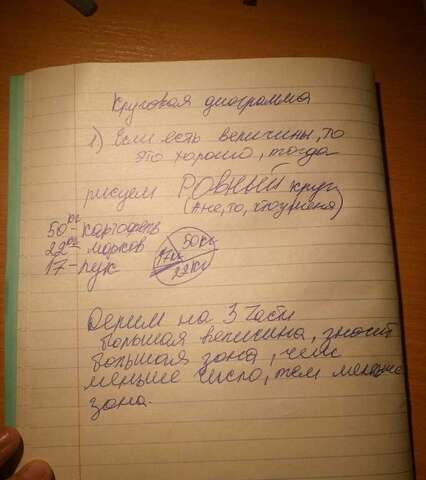 Круговая диаграмма
1) Если есть величины, то
это хорошо, тогда
рисуем РОВНЫЙ круг
(А не, то, что у меня)
50кг - картофель
22кг - морковь
17 - лук
50кг
17кг
22кг
Делим на 3 части
большая величина, значит
большая зона, чем
меньше число, тем меньше
зона.